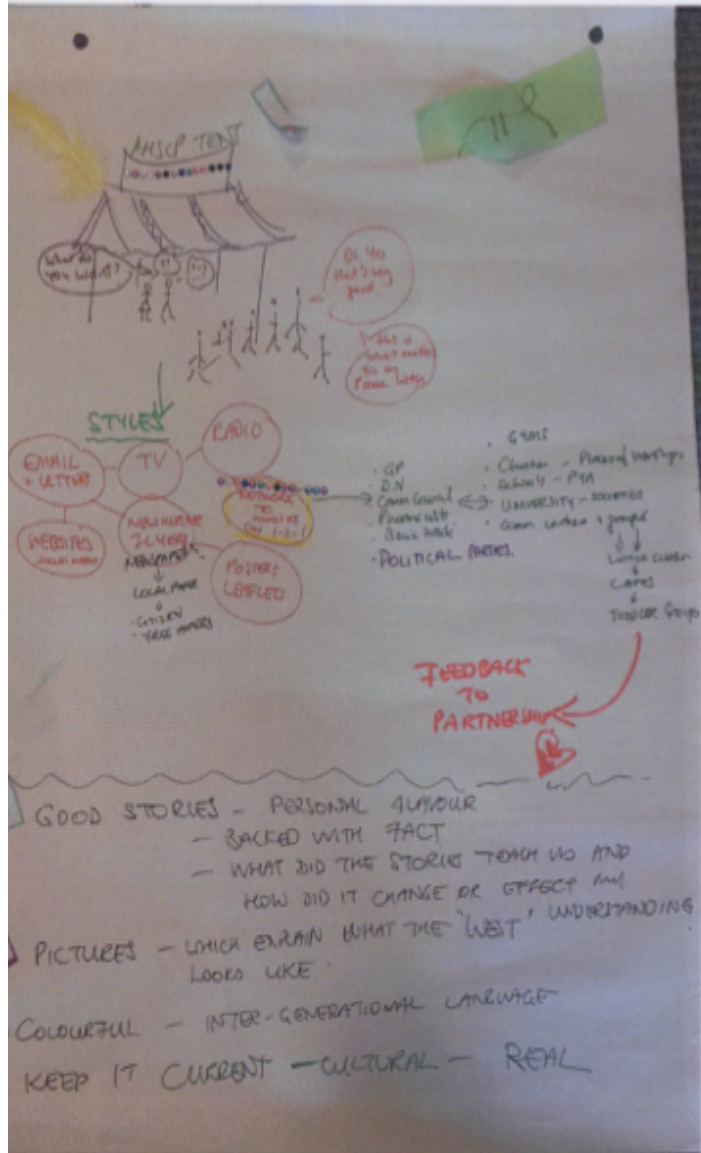 AHSCP TENT
What do
you want?
that's my
STYLES
EMAIL
+ LETTERS
TV
RADIO
WEBSITES
FLYER
NEWSPAPERS
LOCAL PAPER
· CITIZEN
· FREE PAPERS
POSTERS
LEAFLETS
NETWORK
TO
ON 1-2-1
· GP
· DN
· Comm Council
· Pharmacists
· Social Work
· POLITICAL PARTIES.
· GYMS
· Churches - Places of Worship
· Schools - PTA
· UNIVERSITY - SOCIETIES
· Comm centres + groups
LUNCH CLUBS
CAFES
TODDLER GROUPS
FEEDBACK
TO
PARTNERSHIP
GOOD STORIES - PERSONAL FLAVOUR
- BACKED WITH FACT
- WHAT DID THE STORIES TEACH US AND
HOW DID IT CHANGE OR EFFECT MY
UNDERSTANDING
PICTURES - WHICH EXPLAIN WHAT THE 'WEST'
LOOKS LIKE.
COLOURFUL - INTER-GENERATIONAL LANGUAGE
KEEP IT CURRENT - CULTURAL - REAL